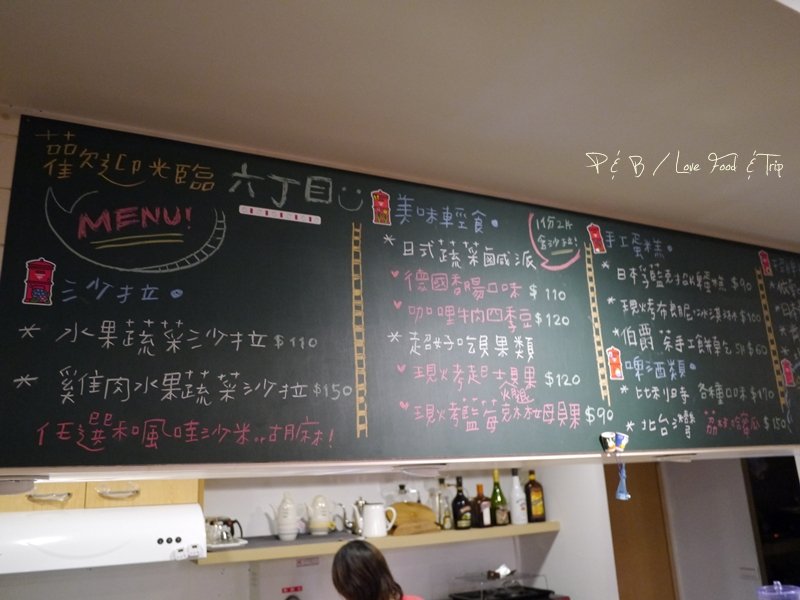 歡迎光臨 六丁目
MENU!
沙拉
* 水果蔬菜沙拉 $110
* 雞肉水果蔬菜沙拉 $150
任選和風哇沙米..胡麻!
美味輕食
1份2片
含沙拉!
* 日式蔬菜鹹派
德國香腸口味 $110
咖哩牛肉四季豆 $120
* 超好吃貝果類
現烤起士貝果 $120
火腿
現烤藍莓 貝果 $90
手工蛋糕
$90
現烤布朗尼冰淇淋 $100
伯爵茶手工餅乾 5片 $60
啤酒類
* 比利時 各種口味 $170
* 北台灣 荔枝 哈密瓜 $150
P & B / Love Food & Trip